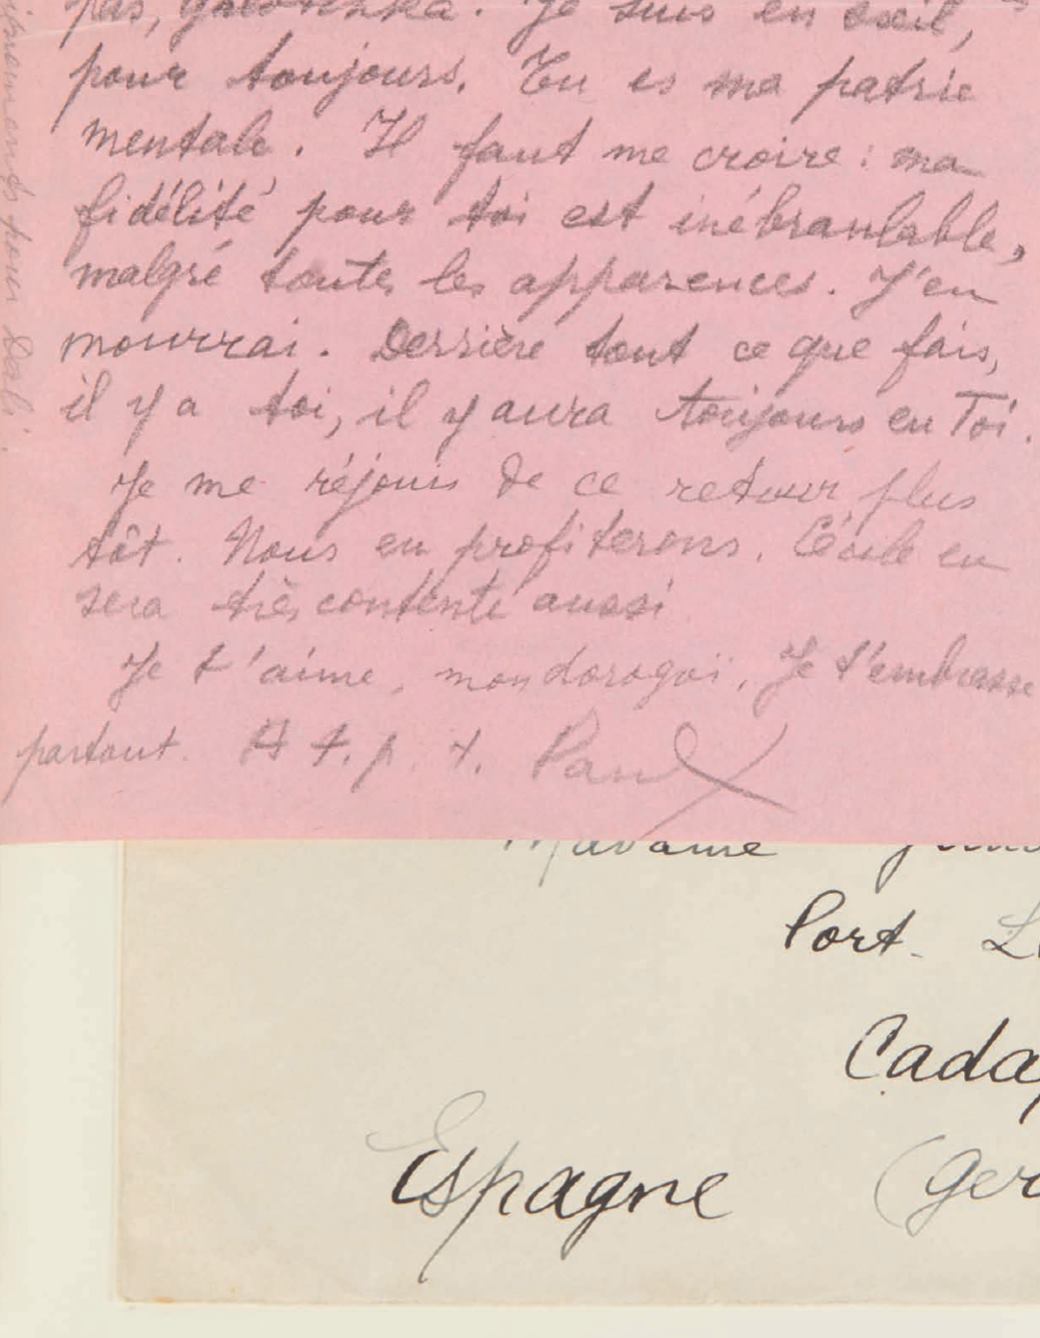 pas, Je suis en exil,
pour toujours. Tu es ma patrie
mentale. Il faut me croire : ma
fidélité pour toi est inébranlable,
malgré toutes les apparences. J'en
mourrai. Derrière tout ce que fais,
il y a toi, il y aura toujours eu Toi.
Je me réjouis de ce retour plus
tôt. Nous en profiterons. Cécile en
sera très contente aussi
Je t'aime, mon dorogoï. Je t'embrasse
partout. A t. p. t. Paul
pour Dali.
Madame
Port. L
Cada
Espagne (Ger